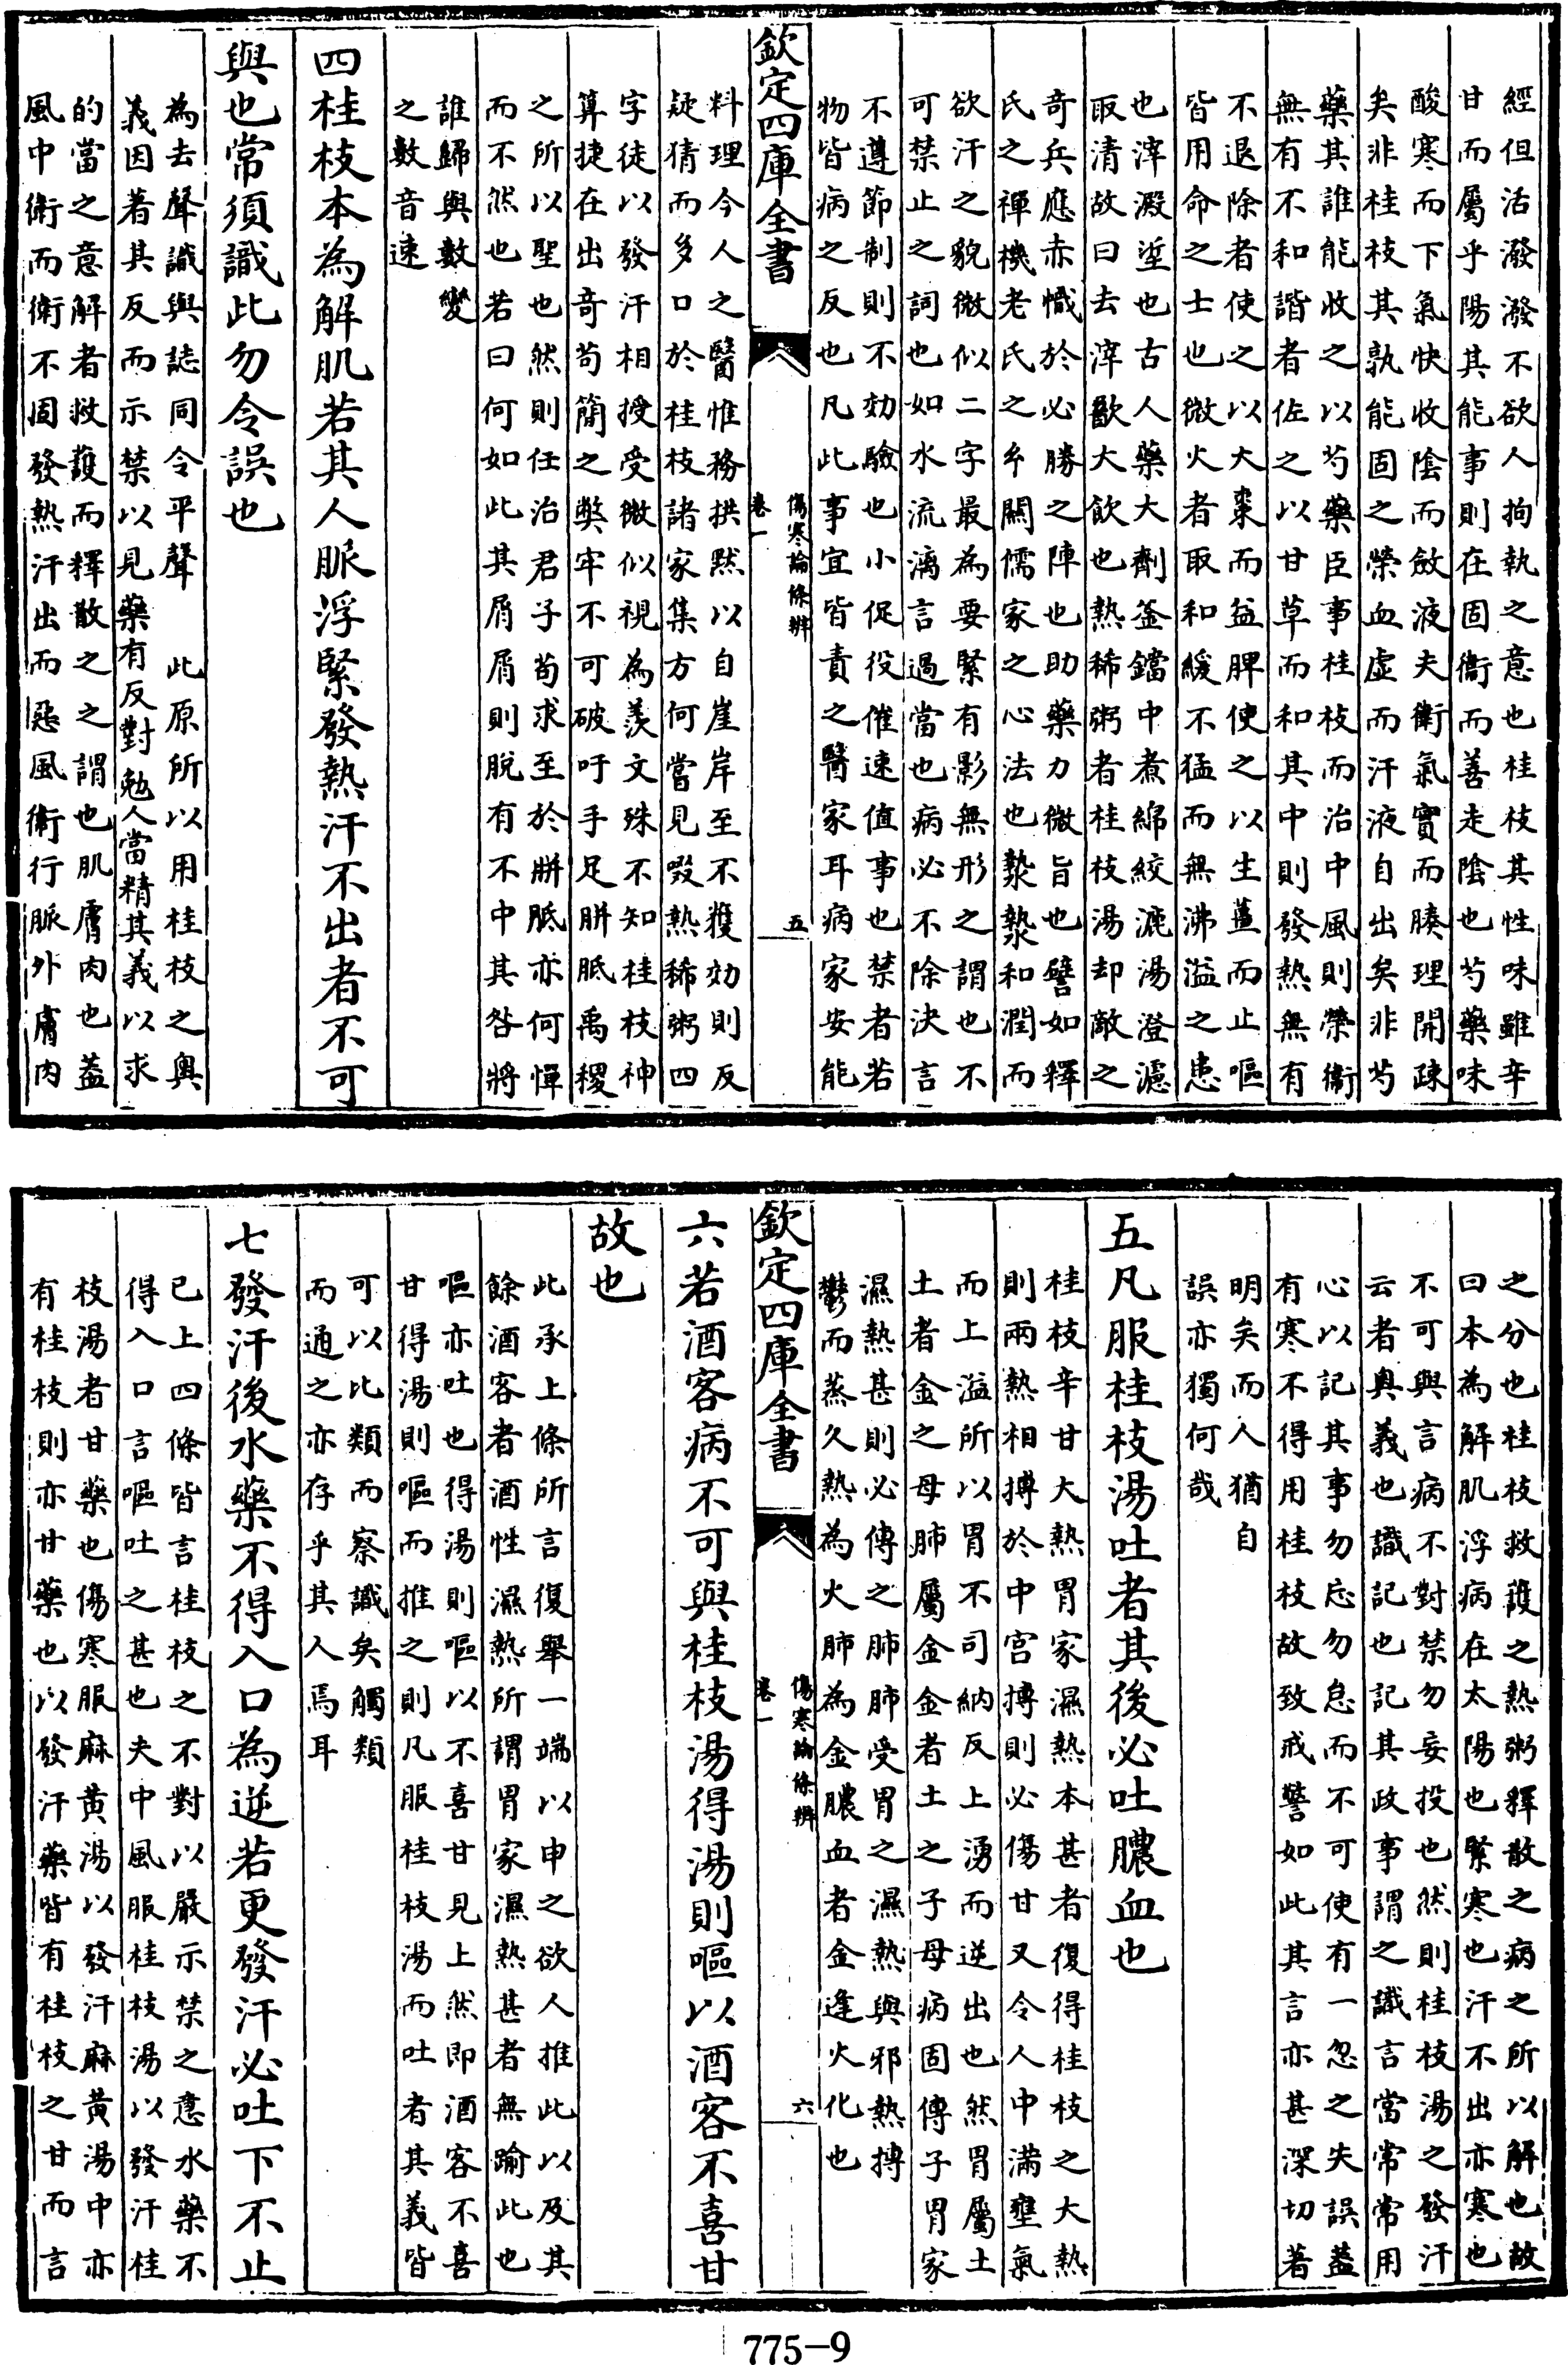 經但活潑潑不欲人拘執之意也桂枝其性味雖辛
甘而屬乎陽其能事則在固衞而善走陰也芍藥味
酸寒而下氣快收陰而斂液夫衞氣實而腠理開疎
矣非桂枝其孰能固之榮血虛而汗液自出矣非芍
藥其誰能收之以芍藥臣事桂枝而治中風則榮衞
無有不和諧者佐之以甘草而和其中則發熱無有
不退除者使之以大棗而益脾使之以生薑而止嘔
皆用命之士也微火者取和緩不猛而無沸溢之患
也滓澱垽也古人藥大劑釜鐺中煮綿絞漉湯澄濾
取清故曰去滓歠大飲也熱稀粥者桂枝湯却敵之
奇兵應赤幟於必勝之陣也助藥力微旨也譬如釋
氏之禪機老氏之乡關儒家之心法也漐漐和潤而
欲汗之貌微似二字最為要緊有影無形之謂也不
可禁止之詞也如水流漓言過當也病必不除決言
不遵節制則不効驗也小促役催速值事也禁者若
物皆病之反也凡此事宜皆責之醫家耳病家安能
欽定四庫全書
傷寒論條辨
卷一
五
料理今人之醫惟務拱默以自崖岸至不獲効則反
疑猜而多口於桂枝諸家集方何嘗見啜熱稀粥四
字徒以發汗相授受微似視為羨文殊不知桂枝神
算捷在出奇苟簡之弊牢不可破吁手足胼胝禹稷
之所以聖也然則任治君子苟求至於胼胝亦何憚
而不然也若曰何如此其屑屑則脫有不中其咎將
誰歸與數變
之數音速
四桂枝本為解肌若其人脈浮緊發熱汗不出者不可
與也常須識此勿令誤也
為去聲識與誌同令平聲　此原所以用桂枝之奧
義因著其反而示禁以見藥有反對勉人當精其義以求
的當之意解者救護而釋散之之謂也肌膚肉也蓋
風中衞而衞不固發熱汗出而惡風衞行脈外膚肉
之分也桂枝救護之熱粥釋散之病之所以解也故
曰本為解肌浮病在太陽也緊寒也汗不出亦寒也
不可與言病不對禁勿妄投也然則桂枝湯之發汗
云者奧義也識記也記其政事謂之識言當常常用
心以記其事勿忘勿怠而不可使有一忽之失誤蓋
有寒不得用桂枝故致戒警如此其言亦甚深切著
明矣而人猶自
誤亦獨何哉
五凡服桂枝湯吐者其後必吐膿血也
桂枝辛甘大熱胃家濕熱本甚者復得桂枝之大熱
則兩熱相搏於中宮搏則必傷甘又令人中滿壅氣
而上溢所以胃不司納反上湧而逆出也然胃屬土
土者金之母肺屬金金者土之子母病固傳子胃家
濕熱甚則必傳之肺肺受胃之濕熱與邪熱搏
鬱而蒸久熱為火肺為金膿血者金逢火化也
欽定四庫全書
傷寒論條辨
卷一
六
六若酒客病不可與桂枝湯得湯則嘔以酒客不喜甘
故也
此承上條所言復舉一端以申之欲人推此以及其
餘酒客者酒性濕熱所謂胃家濕熱甚者無踰此也
嘔亦吐也得湯則嘔以不喜甘見上然即酒客不喜
甘得湯則嘔而推之則凡服桂枝湯而吐者其義皆
可以比類而察識矣觸類
而通之亦存乎其人焉耳
七發汗後水藥不得入口為逆若更發汗必吐下不止
已上四條皆言桂枝之不對以嚴示禁之意水藥不
得入口言嘔吐之甚也夫中風服桂枝湯以發汗桂
枝湯者甘藥也傷寒服麻黃湯以發汗麻黃湯中亦
有桂枝則亦甘藥也以發汗藥皆有桂枝之甘而言
775-9